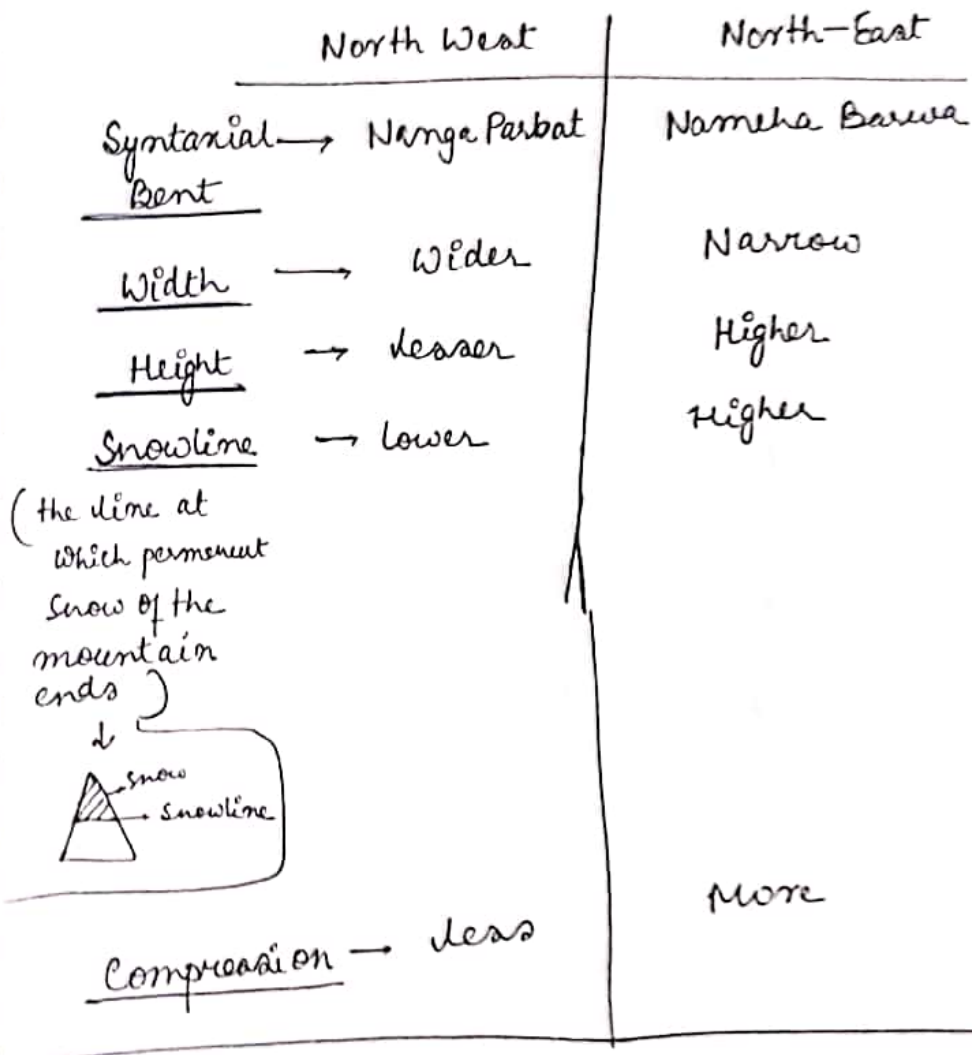 North West North-East
Syntaxial → Nanga Parbat Namcha Barwa
Bent
Width → Wider Narrow
Height → lesser Higher
Snowline → lower Higher
(the line at
which permenent
snow of the
mountain
ends)
↓
snow
→ snowline
Compression → less More